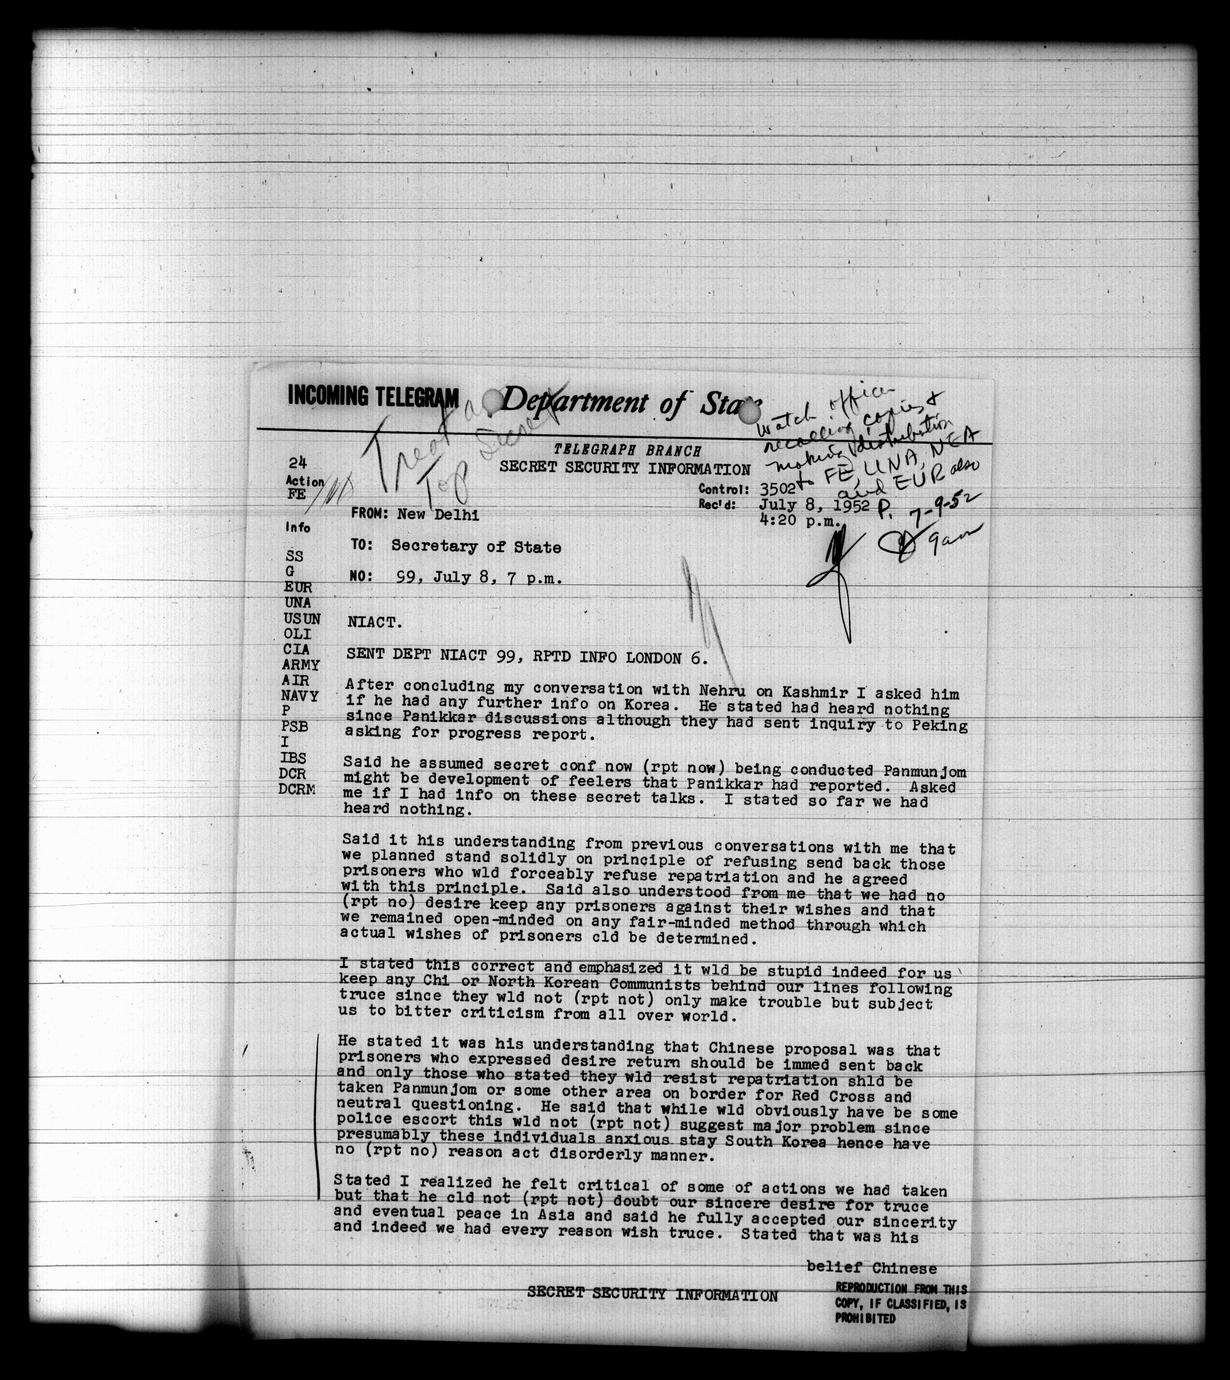 INCOMING TELEGRAM Department of State
Treat as
Top Secret
Watch office
recalling copies &
making distribution
to FE, UNA, NEA
and EUR also
P. 7-9-52
9am
TELEGRAPH BRANCH
SECRET SECURITY INFORMATION
24
Action
FE
Control: 3502
Rec'd: July 8, 1952
4:20 p.m.
FROM: New Delhi
TO: Secretary of State
NO: 99, July 8, 7 p.m.
Info
SS
G
EUR
UNA
USUN
OLI
CIA
ARMY
AIR
NAVY
P
PSB
I
IBS
DCR
DCRM
NIACT.
SENT DEPT NIACT 99, RPTD INFO LONDON 6.
After concluding my conversation with Nehru on Kashmir I asked him
if he had any further info on Korea. He stated had heard nothing
since Panikkar discussions although they had sent inquiry to Peking
asking for progress report.
Said he assumed secret conf now (rpt now) being conducted Panmunjom
might be development of feelers that Panikkar had reported. Asked
me if I had info on these secret talks. I stated so far we had
heard nothing.
Said it his understanding from previous conversations with me that
we planned stand solidly on principle of refusing send back those
prisoners who wld forceably refuse repatriation and he agreed
with this principle. Said also understood from me that we had no
(rpt no) desire keep any prisoners against their wishes and that
we remained open-minded on any fair-minded method through which
actual wishes of prisoners cld be determined.
I stated this correct and emphasized it wld be stupid indeed for us
keep any Chi or North Korean Communists behind our lines following
truce since they wld not (rpt not) only make trouble but subject
us to bitter criticism from all over world.
He stated it was his understanding that Chinese proposal was that
prisoners who expressed desire return should be immed sent back
and only those who stated they wld resist repatriation shld be
taken Panmunjom or some other area on border for Red Cross and
neutral questioning. He said that while wld obviously have be some
police escort this wld not (rpt not) suggest major problem since
presumably these individuals anxious stay South Korea hence have
no (rpt no) reason act disorderly manner.
Stated I realized he felt critical of some of actions we had taken
but that he cld not (rpt not) doubt our sincere desire for truce
and eventual peace in Asia and said he fully accepted our sincerity
and indeed we had every reason wish truce. Stated that was his
belief Chinese
SECRET SECURITY INFORMATION
REPRODUCTION FROM THIS
COPY, IF CLASSIFIED, IS
PROHIBITED